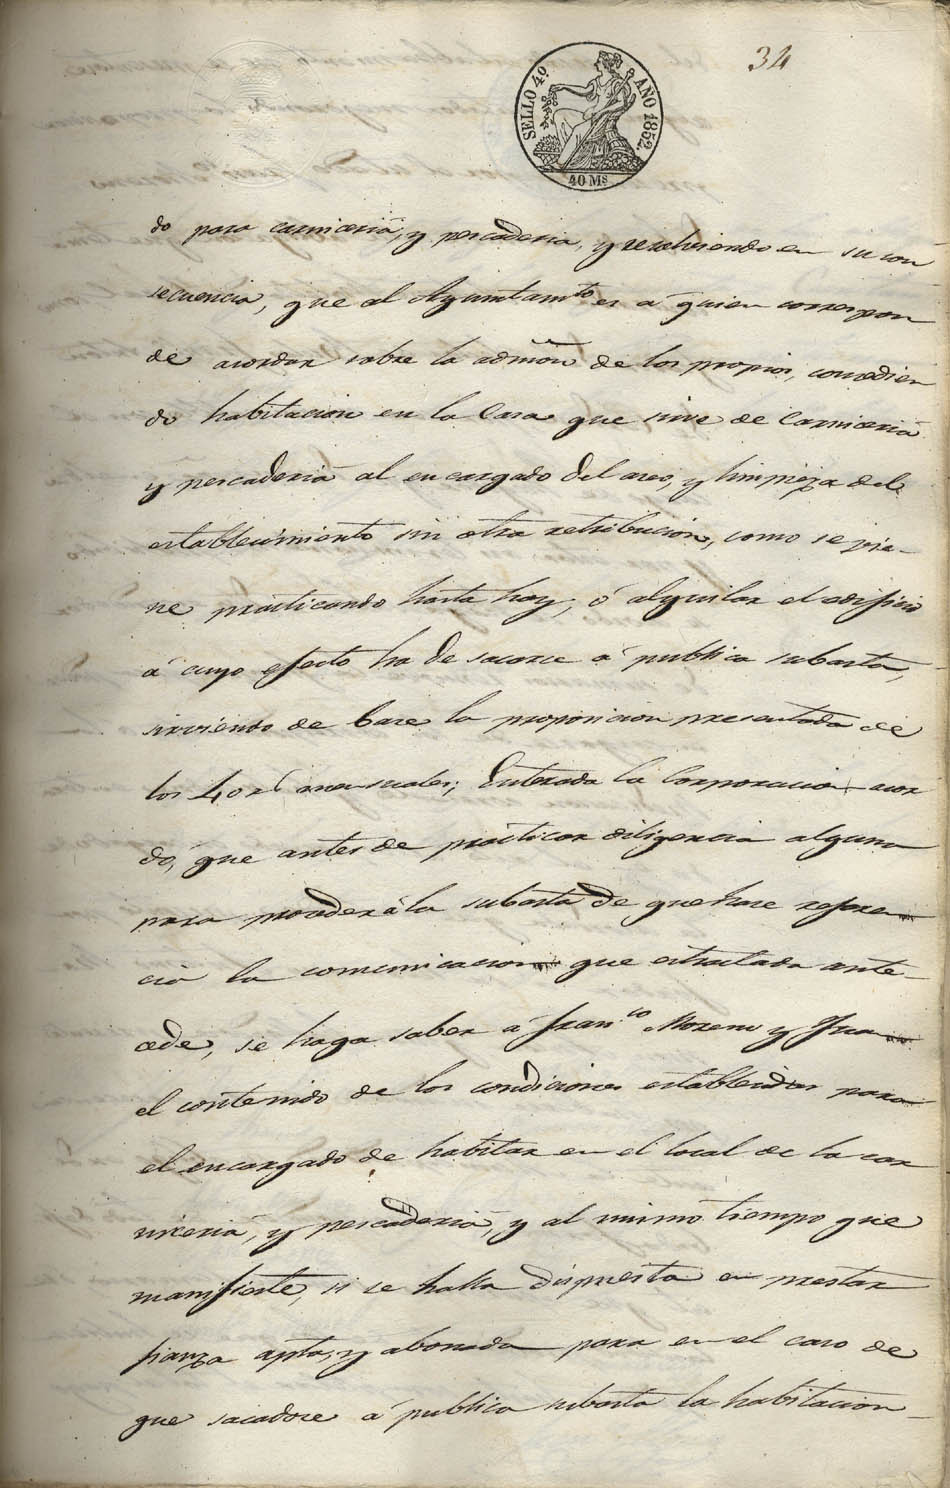 34
SELLO 4º AÑO 1852.
40 Ms
do para carniceria, y pescaderia, y resolviendo en su con
secuencia, que al Ayuntamto es á quien correspon
de acordar sobre la admon de los propios, concedien
do habitacion en la Casa que sirve de Carniceria
y pescaderia al encargado del aseo, y limpieza del
establecimiento sin otra retribucion, como se vie-
ne practicando hasta hoy, ó alquilar el edificio
á cuyo efecto ha de sacarse á publica subasta,
sirviendo de base la proposicion presentada de
los 40 rs mensuales; Enterada la Corporacion acor
dó, que antes de practicar diligencia alguna
para proceder á la subasta de que hace referen
cia la comunicacion que estractada ante-
cede, se haga saber á Franco Moreno y
el contenido de las condiciones establecidas para
el encargado de habitar en el local de la car
niceria, y pescaderia, y al mismo tiempo que
manifieste, si se halla dispuesta en prestar
fianza apta, y abonada para en el caso de
que sacadose á publica subasta la habitacion